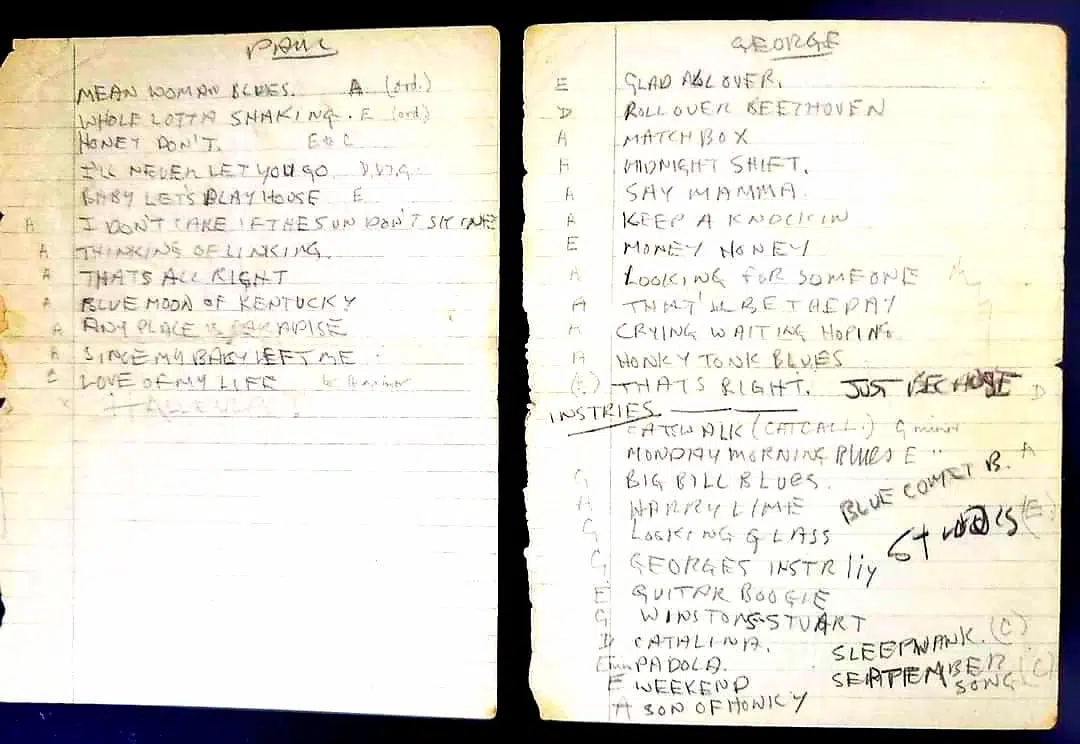 PAUL
MEAN WOMAN BLUES. A (ord.)
WHOLE LOTTA SHAKING. E (ord.)
HONEY DON'T. E C
I'LL NEVER LET YOU GO
BABY LET'S PLAY HOUSE E
A I DON'T CARE IF THE SUN DON'T
A THINKING OF LINKING.
A THATS ALL RIGHT
A BLUE MOON OF KENTUCKY
A ANY PLACE IS PARADISE
A SINCE MY BABY LEFT ME
LOVE OF MY LIFE
GEORGE
E GLAD ALL OVER.
D ROLL OVER BEETHOVEN
A MATCHBOX
A MIDNIGHT SHIFT.
A SAY MAMMA.
A KEEP A KNOCKIN
E MONEY HONEY
A LOOKING FOR SOMEONE
A THAT'LL BE THE DAY
A CRYING WAITING HOPING.
A HONKY TONK BLUES
(E) THATS RIGHT. JUST BECAUSE D
INSTRIES
CATSWALK (CATCALL.) G minor
MONDAY MORNING BLUES E "
G BIG BILL BLUES. BLUE COMET B. A
A HARRY LIME
G LOOKING GLASS (E)
G GEORGES INSTR
E GUITAR BOOGIE
G WINSTONS STUART
D CATALINA. SLEEPWANK. (C)
PADOLA. SEPTEMBER SONG (C)
E WEEKEND
A SON OF HONKY